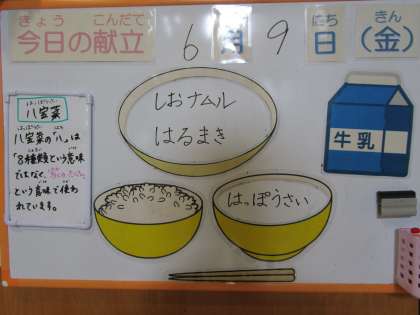 きょう こんだて
今日の献立
6月9日(金)
にち きん
しおナムル
はるまき
牛乳
はっぽうさい
はっぽうさい
八宝菜
八宝菜の「八」は
"8種類という意味
ではなく、
という意味で使わ
れています。